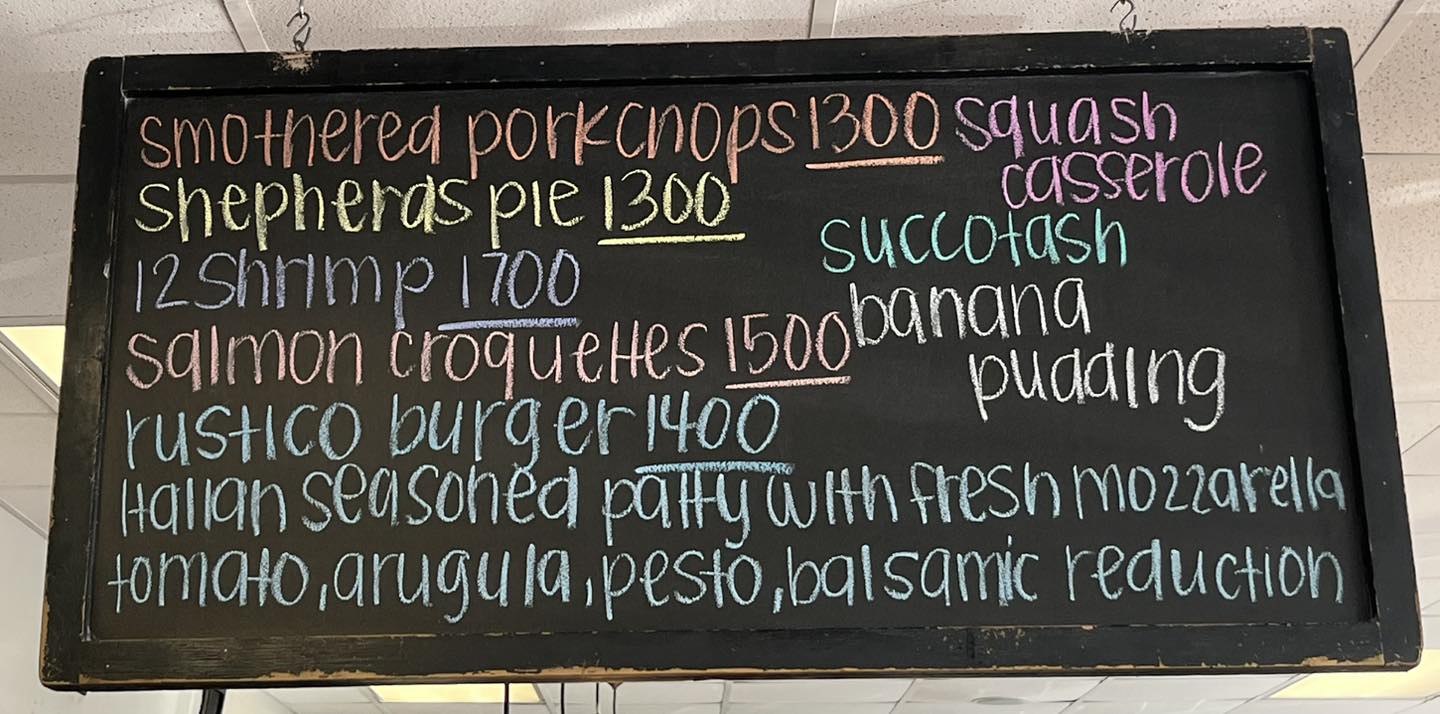 smothered porkchops 1300
shepherds pie 1300
12 shrimp 1700
salmon croquettes 1500
rustico burger 1400
Italian seasoned patty with fresh mozzarella
tomato, arugula, pesto, balsamic reduction
squash
casserole
succotash
banana
pudding